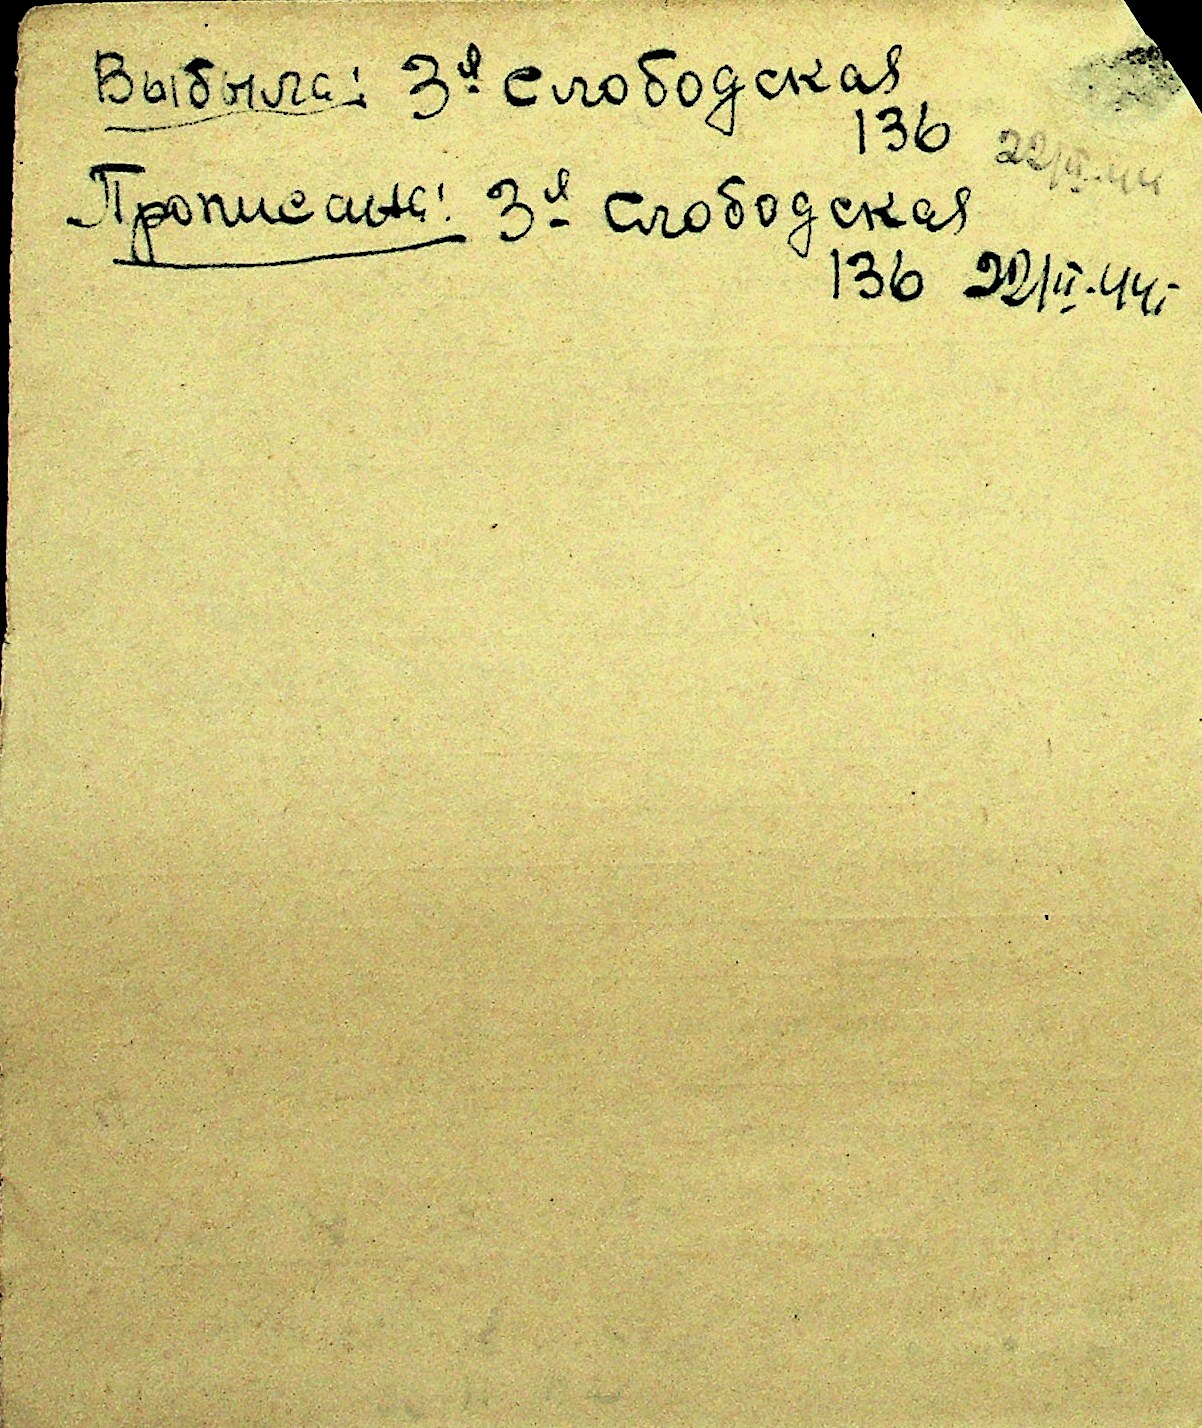 Выбыла: 3я Слободская
136 22/II-44
Прописана: 3я Слободская
136 22/II-44г